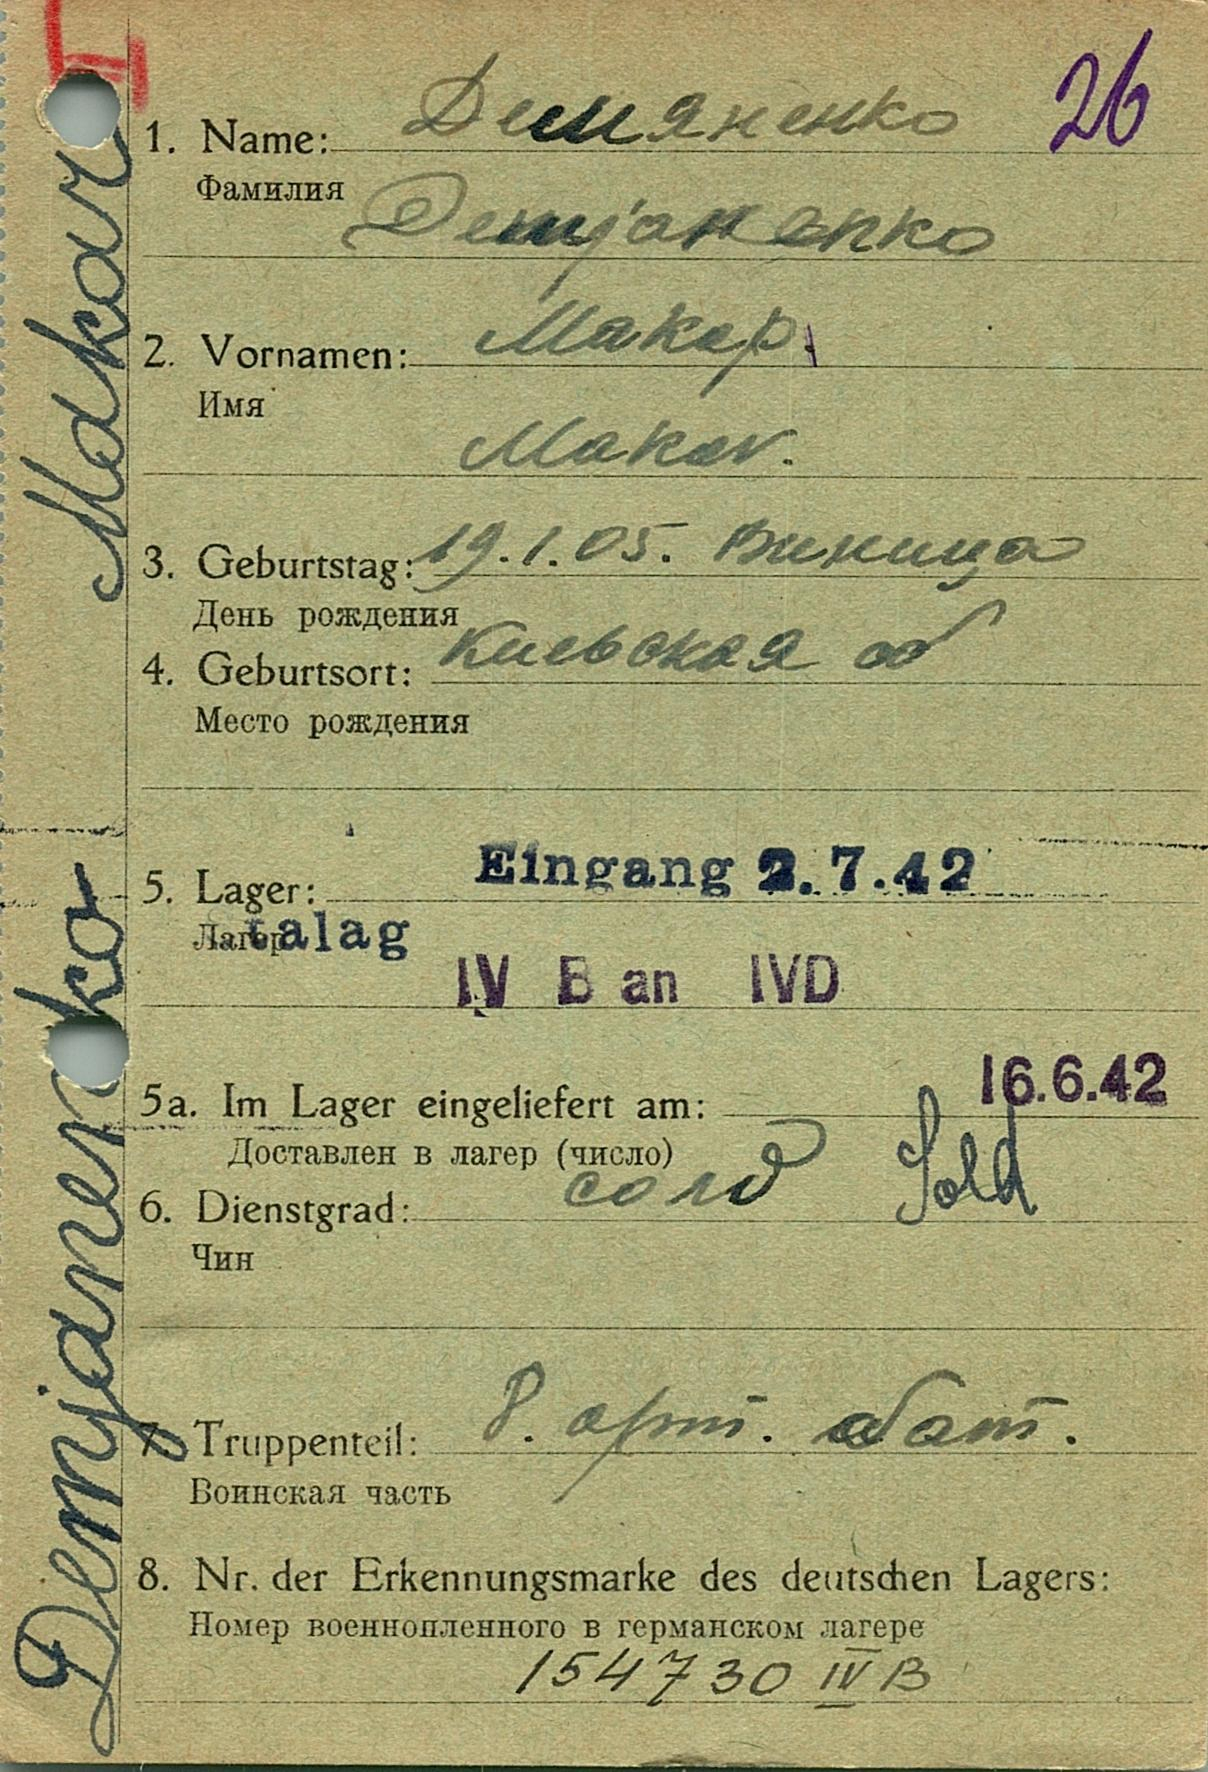 26
1. Name: Демяненко
Фамилия
Demjanenko
2. Vornamen: Макар
Имя
Makar.
3. Geburtstag: 19.1.05. Виница
День рождения
Киевская об
4. Geburtsort:
Место рождения
Eingang 2.7.42
5. Lager:
Лагер
talag
IV B an IVD
16.6.42
5a. Im Lager eingeliefert am:
Доставлен в лагер (число)
6. Dienstgrad: солд Sold
Чин
7. Truppenteil: 8. арт. бат.
Воинская часть
8. Nr. der Erkennungsmarke des deutschen Lagers:
Номер военнопленного в германском лагере
154730 IV B
Demjanenko Makar